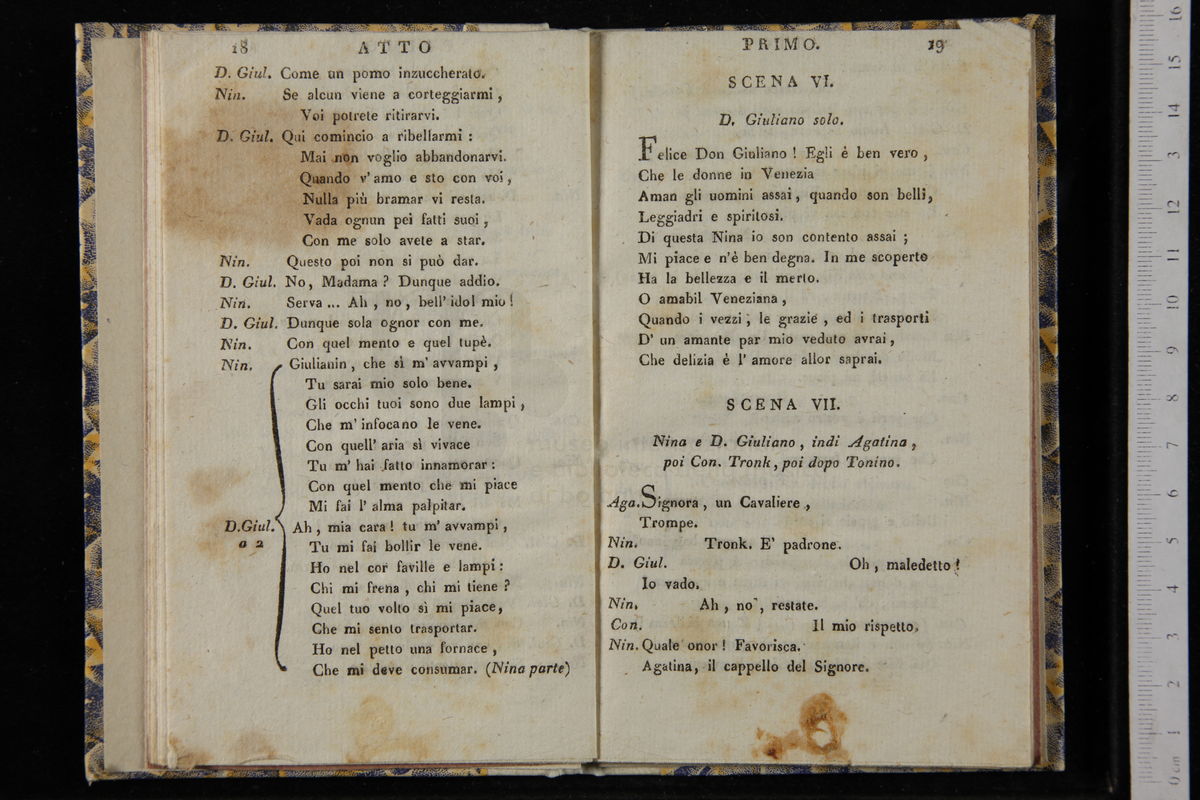 18 ATTO
D. Giul. Come un pomo inzuccherato.
Nin. Se alcun viene a corteggiarmi,
Voi potrete ritirarvi.
D. Giul. Qui comincio a ribellarmi:
Mai non voglio abbandonarvi.
Quando v' amo e sto con voi,
Nulla più bramar vi resta.
Vada ognun pei fatti suoi,
Con me solo avete a star.
Nin. Questo poi non si può dar.
D. Giul. No, Madama? Dunque addio.
Nin. Serva ... Ah, no, bell' idol mio!
D. Giul. Dunque sola ognor con me.
Nin. Con quel mento e quel tupè.
Nin. Giulianin, che sì m' avvampi,
Tu sarai mio solo bene.
Gli occhi tuoi sono due lampi,
Che m' infocano le vene.
Con quell' aria sì vivace
Tu m' hai fatto innamorar:
Con quel mento che mi piace
Mi fai l' alma palpitar.
D. Giul. Ah, mia cara! tu m' avvampi,
a 2 Tu mi fai bollir le vene.
Ho nel cor faville e lampi:
Chi mi frena, chi mi tiene?
Quel tuo volto sì mi piace,
Che mi sento trasportar.
Ho nel petto una fornace,
Che mi deve consumar. (Nina parte)
PRIMO. 19
SCENA VI.
D. Giuliano solo.
Felice Don Giuliano! Egli è ben vero,
Che le donne in Venezia
Aman gli uomini assai, quando son belli,
Leggiadri e spiritosi.
Di questa Nina io son contento assai;
Mi piace e n'è ben degna. In me scoperto
Ha la bellezza e il merto.
O amabil Veneziana,
Quando i vezzi, le grazie, ed i trasporti
D' un amante par mio veduto avrai,
Che delizia è l' amore allor saprai.
SCENA VII.
Nina e D. Giuliano, indi Agatina,
poi Con. Tronk, poi dopo Tonino.
Aga. Signora, un Cavaliere,
Trompe.
Nin. Tronk. E' padrone.
D. Giul. Oh, maledetto!
Io vado.
Nin. Ah, no, restate.
Con. Il mio rispetto.
Nin. Quale onor! Favorisca.
Agatina, il cappello del Signore.